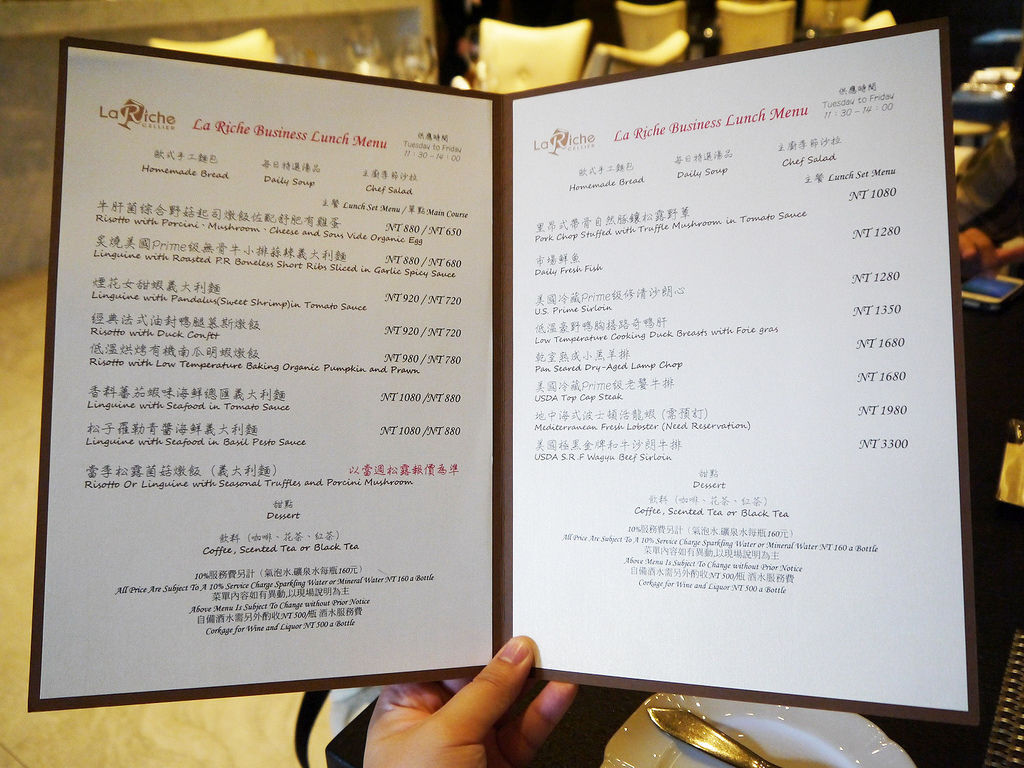 La Riche
CELLIER
La Riche Business Lunch Menu
供應時間
Tuesday to Friday
11:30-14:00
歐式手工麵包
Homemade Bread
每日特選湯品
Daily Soup
主廚季節沙拉
Chef Salad
主餐 Lunch Set Menu / 單點 Main Course
牛肝菌綜合野菇起司燉飯佐配舒肥有雞蛋 NT 880 / NT 650
Risotto with Porcini、Mushroom、Cheese and Sous Vide Organic Egg
炙燒美國Prime級無骨牛小排蒜辣義大利麵 NT 880 / NT 680
Linguine with Roasted P.R Boneless Short Ribs Sliced in Garlic Spicy Sauce
煙花女甜蝦義大利麵 NT 920 / NT 720
Linguine with Pandalus(Sweet Shrimp)in Tomato Sauce
經典法式油封鴨腿慕斯燉飯 NT 920 / NT 720
Risotto with Duck Confet
低溫烘烤有機南瓜明蝦燉飯 NT 980 / NT 780
Risotto with Low Temperature Baking Organic Pumpkin and Prawn
香料蕃茄蝦味海鮮總匯義大利麵 NT 1080 / NT 880
Linguine with Seafood in Tomato Sauce
松子羅勒青醬海鮮義大利麵 NT 1080 / NT 880
Linguine with Seafood in Basil Pesto Sauce
當季松露菌菇燉飯（義大利麵） 以當週松露報價為準
Risotto Or Linguine with Seasonal Truffles and Porcini Mushroom
甜點
Dessert
飲料（咖啡、花茶、紅茶）
Coffee, Scented Tea or Black Tea
10%服務費另計（氣泡水.礦泉水每瓶160元）
All Price Are Subject To A 10% Service Charge Sparkling Water or Mineral Water NT 160 a Bottle
菜單內容如有異動,以現場說明為主
Above Menu Is Subject To Change without Prior Notice
自備酒水需另外酌收NT 500/瓶 酒水服務費
Corkage for Wine and Liquor NT 500 a Bottle
La Riche
CELLIER
La Riche Business Lunch Menu
供應時間
Tuesday to Friday
11:30-14:00
歐式手工麵包
Homemade Bread
每日特選湯品
Daily Soup
主廚季節沙拉
Chef Salad
主餐 Lunch Set Menu
里昂式帶骨自然豚鑲松露野蕈 NT 1080
Pork Chop Stuffed with Truffle Mushroom in Tomato Sauce
市場鮮魚 NT 1280
Daily Fresh Fish
美國冷藏Prime級修清沙朗心 NT 1280
U.S. Prime Sirloin
低溫豪野鴨胸搭路奇鴨肝 NT 1350
Low Temperature Cooking Duck Breasts with Foie gras
乾室熟成小羔羊排 NT 1680
Pan Seared Dry-Aged Lamp Chop
美國冷藏Prime級老饕牛排 NT 1680
USDA Top Cap Steak
地中海式波士頓活龍蝦 (需預訂) NT 1980
Mediterranean Fresh Lobster (Need Reservation)
美國極黑金牌和牛沙朗牛排 NT 3300
USDA S.R.F Wagyu Beef Sirloin
甜點
Dessert
飲料（咖啡、花茶、紅茶）
Coffee, Scented Tea or Black Tea
10%服務費另計（氣泡水.礦泉水每瓶160元）
All Price Are Subject To A 10% Service Charge Sparkling Water or Mineral Water NT 160 a Bottle
菜單內容如有異動,以現場說明為主
Above Menu Is Subject To Change without Prior Notice
自備酒水需另外酌收NT 500/瓶 酒水服務費
Corkage for Wine and Liquor NT 500 a Bottle